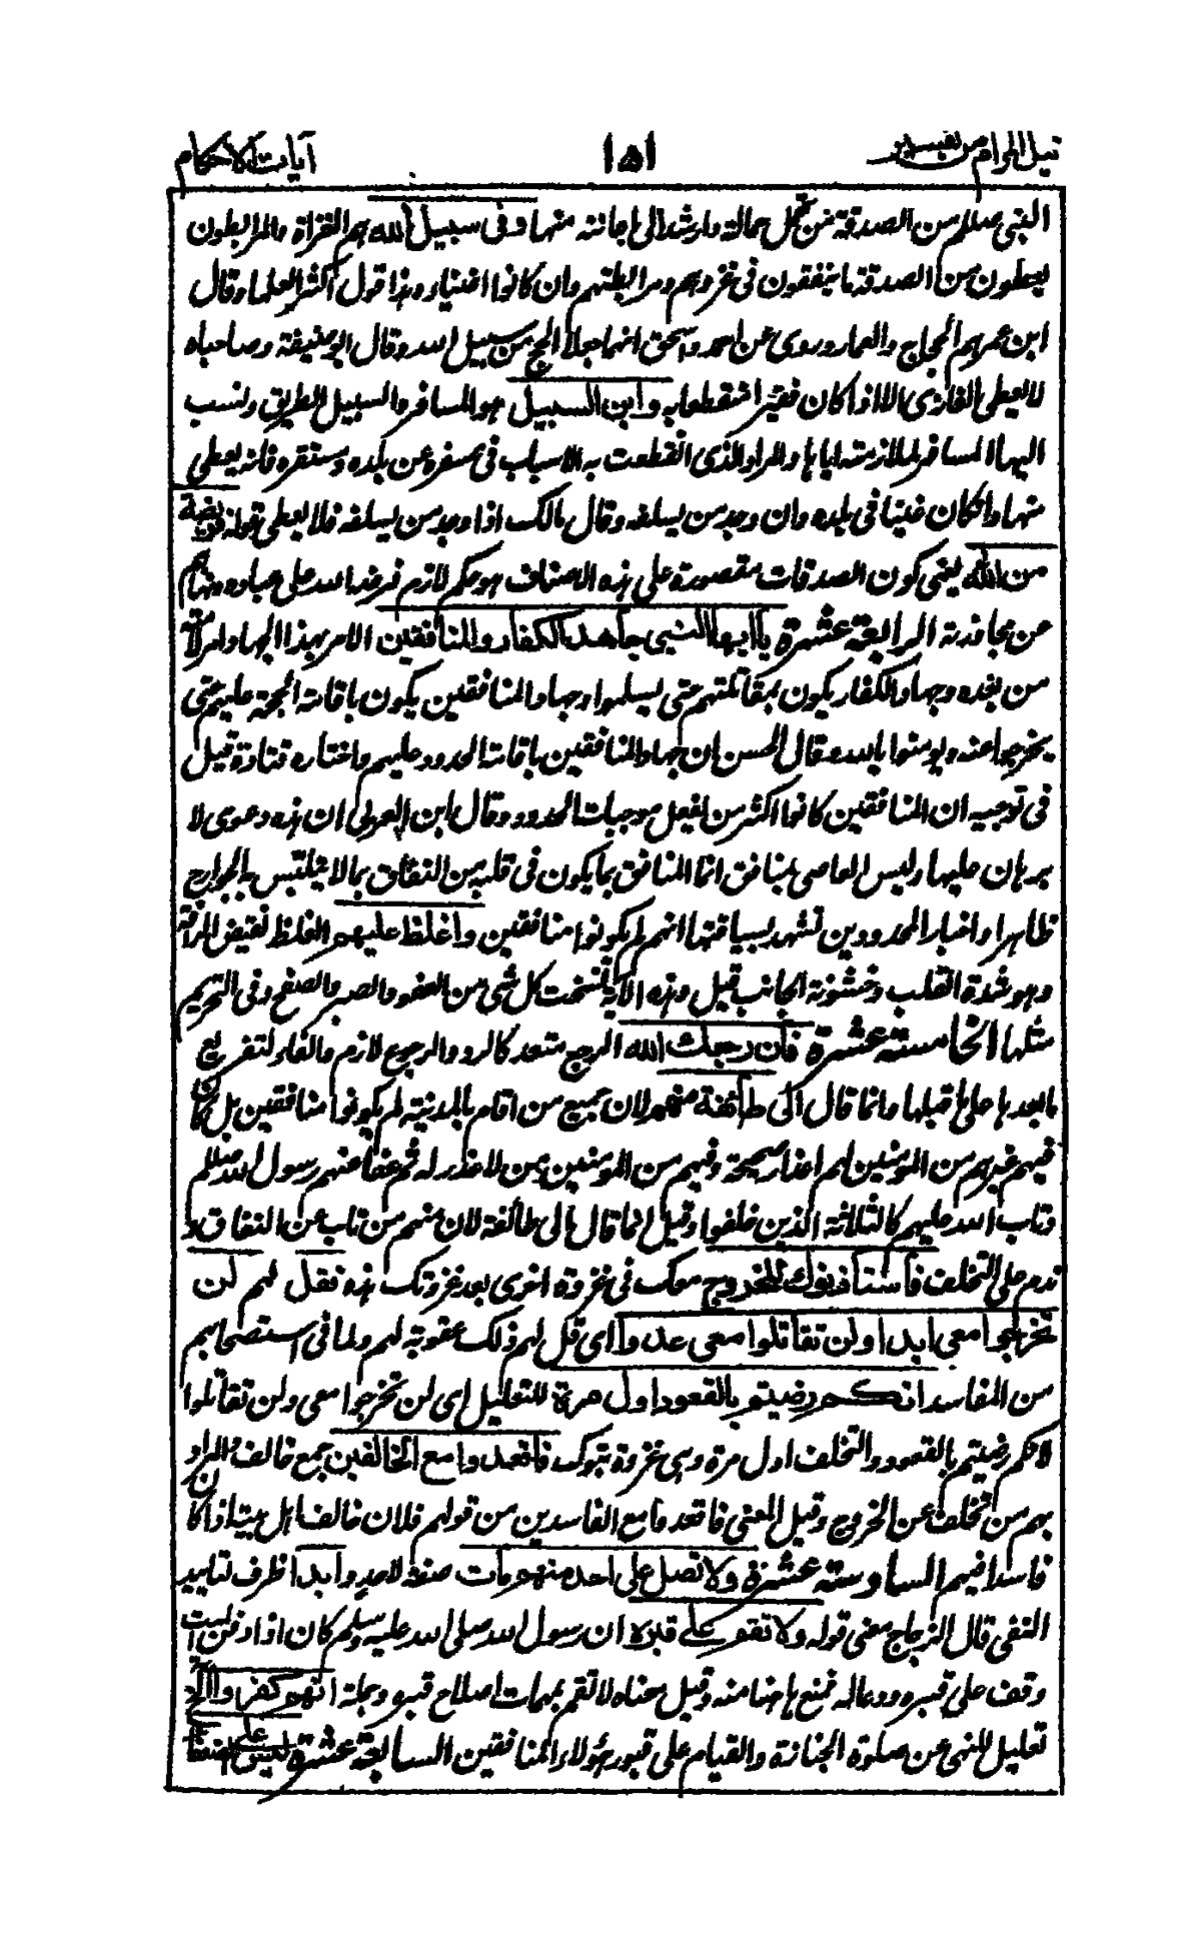 نيل المرام من تفسير ١٥١ آيات الاحكام
النبي صللم من الصدقة من تحمل حمالة وارشد الى اعانته منها وفى سبيل الله هم الغزاة والمرابطون
يعطون من الصدقة ما ينفقون فى غزوهم ومرابطتهم وان كانوا اغنياء وهذا قول اكثر العلماء وقال
ابن عمر هم الحجاج والعمار وروى عن احمد واسحق انهما جعلا الحج من سبيل الله وقال ابو حنيفة وصاحباه
لا يعطى الغازى الا اذا كان فقيرا منقطعا به وابن السبيل هو المسافر والسبيل الطريق ونسب
اليها المسافر لملازمته اياها والمراد الذى انقطعت به الاسباب فى سفره عن بلده ومستقره فانه يعطى
منها وان كان غنيا فى بلده وان وجد من يسلفه وقال مالك اذا وجد من يسلفه فلا يعطى قوله فريضة
من الله يعنى كون الصدقات مقصورة على هذه الاصناف هو حكم لازم فرضه الله على عباده ونهاهم
عن مجاوزته الرابعة عشرة يا ايها النبي جاهد الكفار والمنافقين الامر بهذا الجهاد امر لامته
من بعده وجهاد الكفار يكون بمقاتلتهم حتى يسلموا وجهاد المنافقين يكون باقامة الحجة عليهم حتى
يخرجوا عنه ويومنوا بالله وقال الحسن ان جهاد المنافقين باقامة الحدود عليهم واختاره قتادة قيل
فى توجيهه ان المنافقين كانوا اكثر من يفعل موجبات الحدود وقال ابن العربي ان هذه دعوى لا
برهان عليها وليس العاصى بمنافق انما المنافق بما يكون فى قلبه من النفاق بما لا يتلبس به الجوارح
ظاهرا واخبار المحدودين تشهد بسياقتها انهم لم يكونوا منافقين واغلظ عليهم الغلظ نقيض الرافة
وهو شدة القلب وخشونة الجانب قيل وهذه الاية نسخت كل شئ من العفو والصبر والصفح وفى التحريم
مثلها الخامسة عشرة فان رجعك الله الرجع متعد كالرد والرجوع لازم والفاء لتفريع
ما بعدها على ما قبلها وانما قال الى طائفة منهم لان جميع من اقام بالمدينة لم يكونوا منافقين بل كان
فيهم غيرهم من المومنين لهم اعذار صحيحة وفيهم من المومنين من لا عذر له ثم عفا عنهم رسول الله صللم
وتاب الله عليهم كالثلاثة الذين خلفوا وقيل انما قال الى طائفة لان منهم من تاب عن النفاق و
ندم على التخلف فاستاذنوك للخروج معك فى غزوة اخرى بعد غزوتك هذه فقل لهم لن
تخرجوا معي ابدا ولن تقاتلوا معي عدوا اى قل لهم ذلك عقوبة لهم ولما فى استصحابهم
من المفاسد انكم رضيتم بالقعود اول مرة للتعليل اى لن تخرجوا معى ولن تقاتلوا
لانكم رضيتم بالقعود والتخلف اول مرة وهى غزوة تبوك فاقعدوا مع الخالفين جمع خالف والمراد
بهم من تخلف عن الخروج وقيل المعنى فاقعدوا مع الفاسدين من قولهم فلان خالف اهل بيته اذا كان
فاسدا فيهم السادسة عشرة ولا تصل على احد منهم مات صفة لاحد وابدا ظرف لتابيد
النفى قال الزجاج معنى قوله ولا تقم على قبره ان رسول الله صلى الله عليه وسلم كان اذا دفن الميت
وقف على قبره ودعا له فمنع ههنا منه وقيل معناه لا تقم بمهمات اصلاح قبره وجملة انهم كفروا الآية
تعليل للنهى عن صلوة الجنازة والقيام على قبور هؤلاء المنافقين السابعة عشرة ليس على الضعفاء